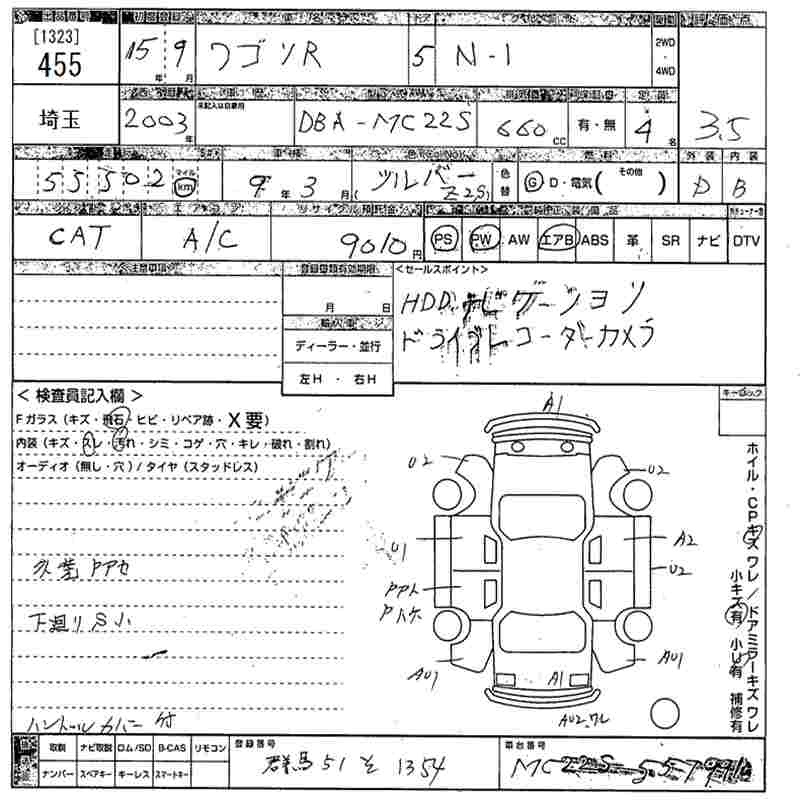 [1323]
455
15 年 9 月
ワゴンR
5
N-1
2WD
・
4WD
埼玉
2003 年
未記入は自家用
DBA-MC22S
660 cc
有・無
4 名
3.5
55502
マイル
km
9 年 3 月
シルバー
Z2S
色替
G・D・電気( その他 )
外装
内装
D
B
CAT
A/C
リサイクル預託金
9010 円
PS
PW
AW
エアB
ABS
革
SR
ナビ
DTV
注意事項
登録書類有効期限
月 日
輸入車
ディーラー・並行
左H ・ 右H
<セールスポイント>
HDDナビゲーション
ドライブレコーダーカメラ
キーロック
<検査員記入欄>
Fガラス(キズ・飛石・ヒビ・リペア跡・X要)
内装(キズ・スレ・汚れ・シミ・コゲ・穴・キレ・破れ・割れ)
オーディオ(無し・穴)/タイヤ(スタッドレス)
下廻りS小
ハンドルカバー付
A1
U2
U2
U1
A2
U2
AU1
A1
AU1
AU2.ワレ
ホイル・CPキズ ワレ/ドアミラーキズ ワレ
小キズ有 小U有 補修有
取説
ナビ取説
ロム/SD
B-CAS
リモコン
ナンバー
スペアキー
キーレス
スマートキー
登録番号
群馬 51 そ 1354
車台番号
MC22S-